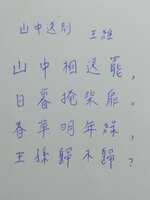 山中送别 王維
山中相送罷，
日暮掩柴扉。
春草明年綠，
王孫歸不歸？